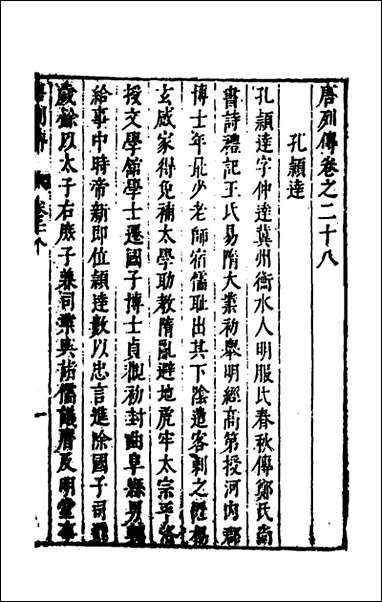 唐列傳卷之二十八
孔穎達
孔穎達字仲達冀州衡水人明服氏春秋傳鄭氏尚
書詩禮記王氏易隋大業初舉明經高第授河内郡
博士年最少老師宿儒耻出其下隂遣客刺之匿楊
玄感家得免補太學助教隋亂避地虎牢太宗平洛
授文學館學士遷國子博士貞觀初封曲阜縣男轉
給事中時帝新即位穎達數以忠言進除國子司業
歲餘以太子右庶子兼司業與諸儒議曆及明堂事